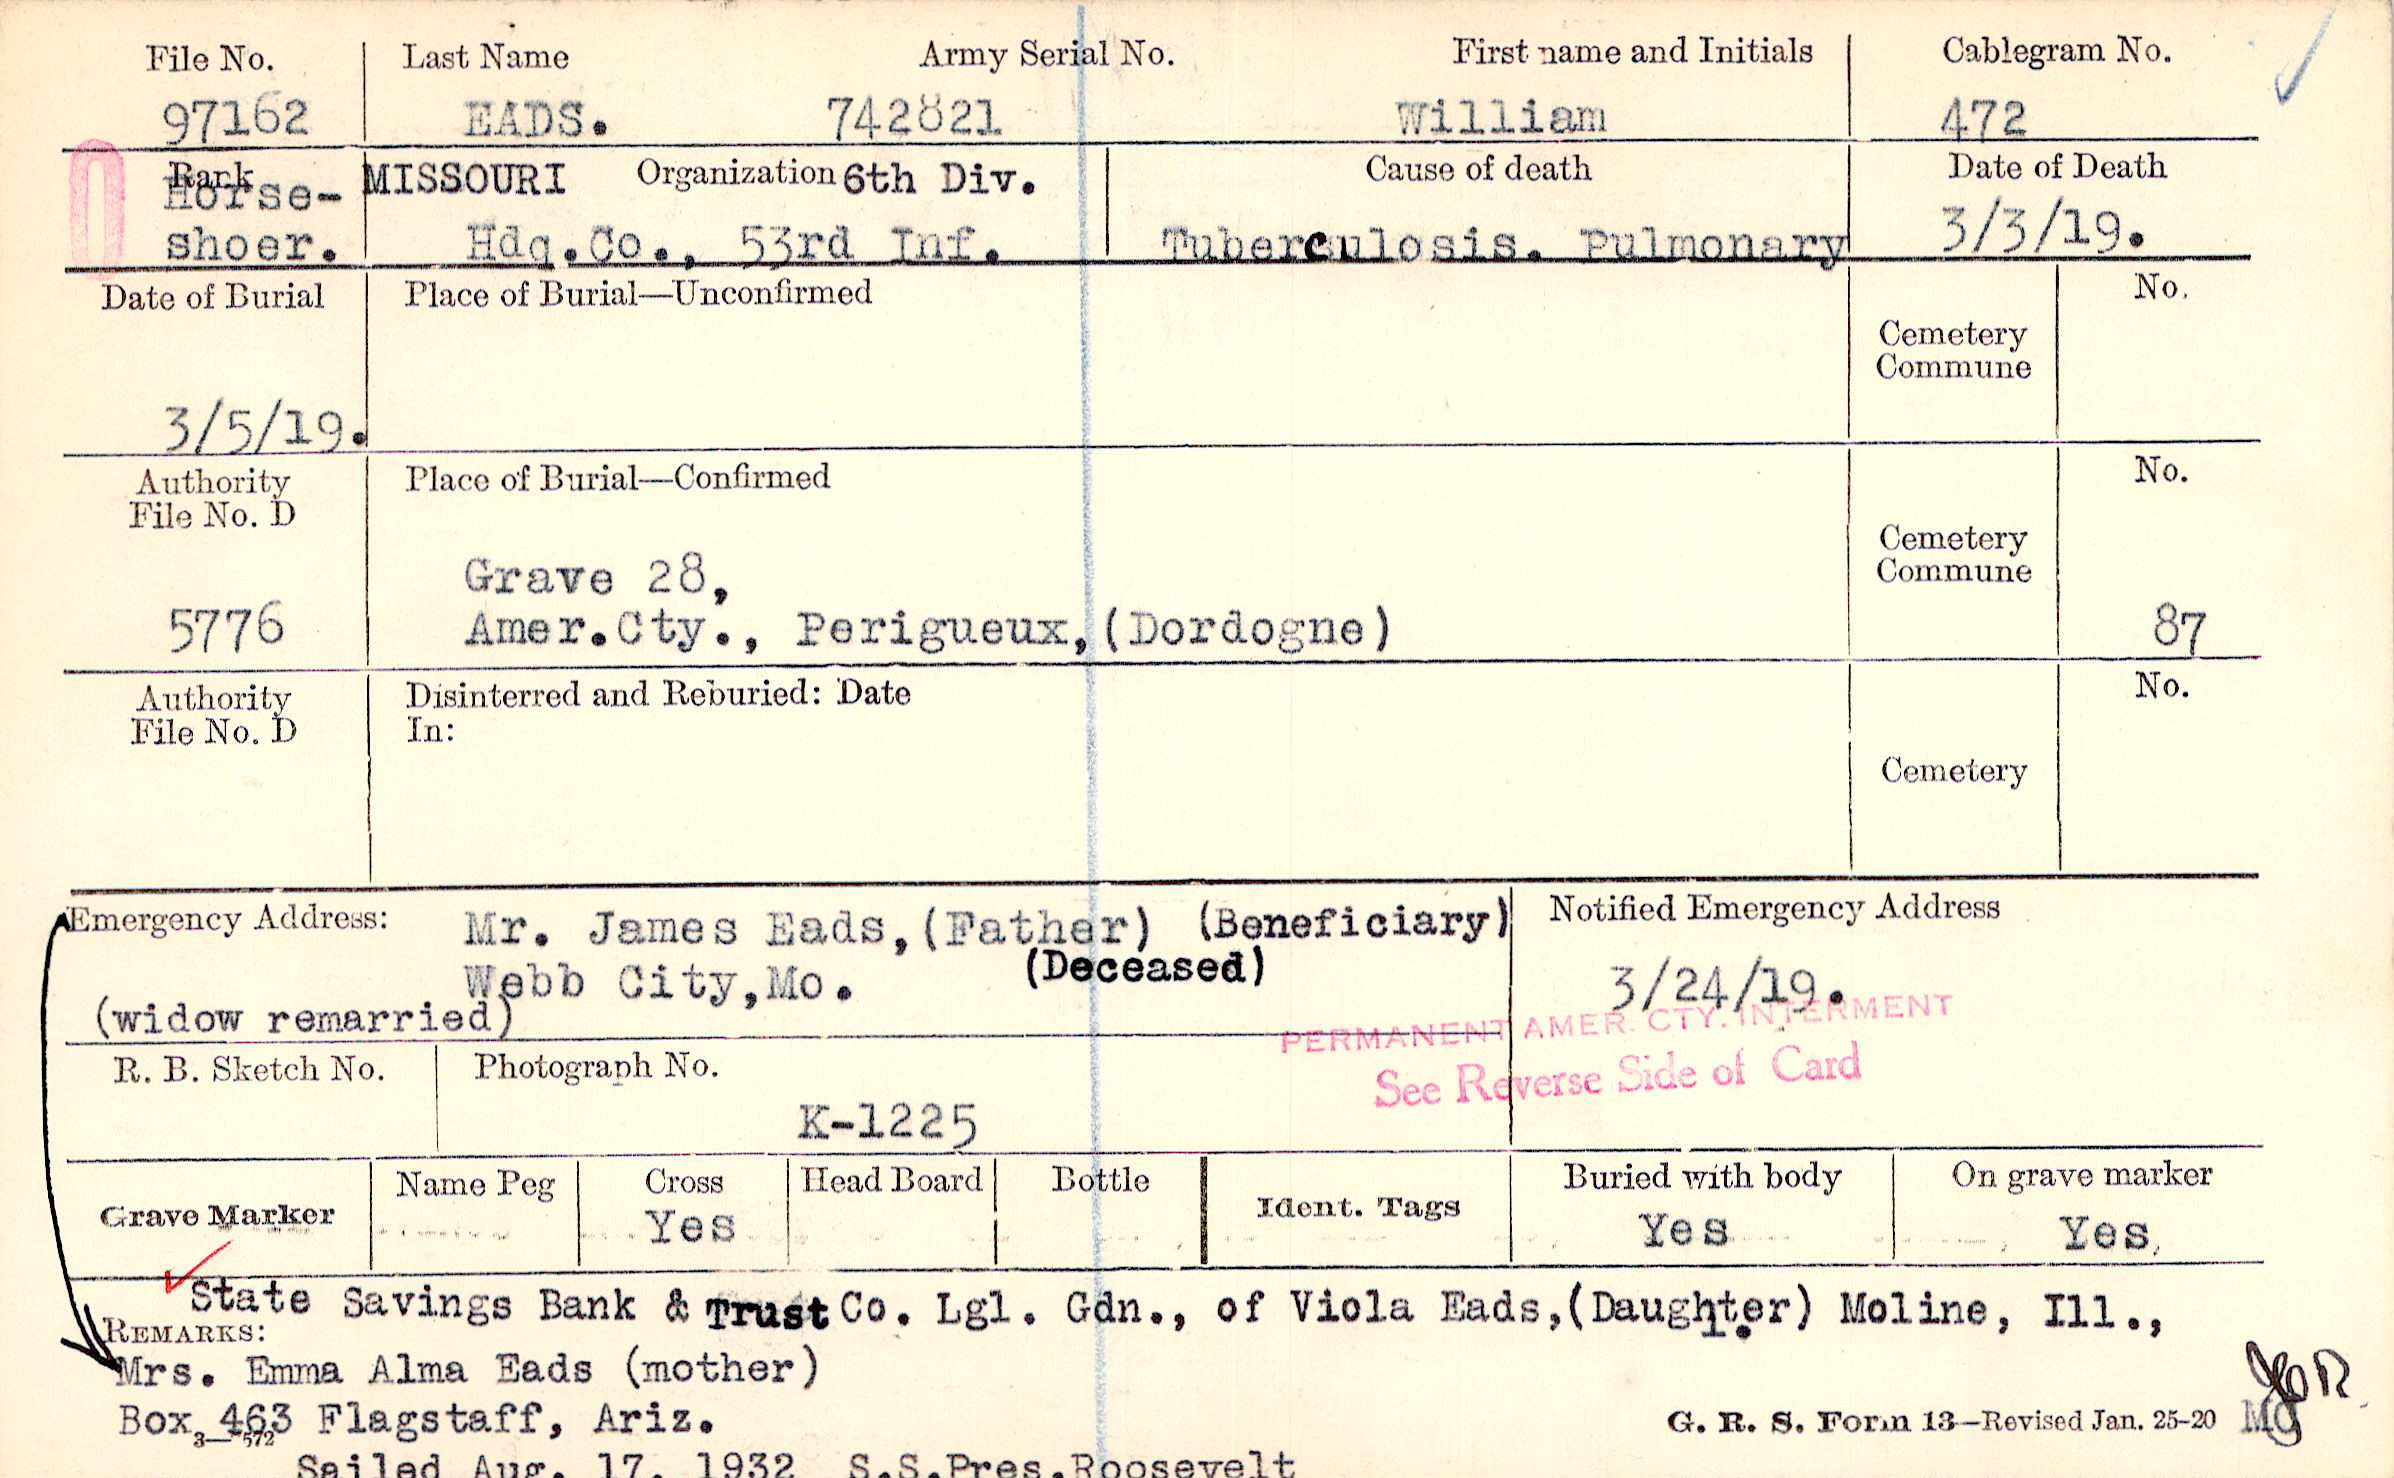 File No. Last Name Army Serial No. First name and Initials Cablegram No.
97162 EADS. 742821 William 472
Rank MISSOURI Organization 6th Div. Cause of death Date of Death
Horse-
shoer. Hdq.Co., 53rd Inf. Tuberculosis. Pulmonary 3/3/19.
Date of Burial Place of Burial—Unconfirmed No.
Cemetery
Commune
3/5/19.
Authority Place of Burial—Confirmed No.
File No. D
Cemetery
Commune
Grave 28,
5776 Amer.Cty., Perigueux,(Dordogne) 87
Authority Disinterred and Reburied: Date No.
File No. D In:
Cemetery
Emergency Address: Mr. James Eads,(Father) (Beneficiary) Notified Emergency Address
Webb City,Mo. (Deceased) 3/24/19.
(widow remarried)
PERMANENT AMER. CTY. INTERMENT
See Reverse Side of Card
R. B. Sketch No. Photograph No.
K-1225
Grave Marker Name Peg Cross Head Board Bottle Ident. Tags Buried with body On grave marker
Yes Yes Yes
State Savings Bank & Trust Co. Lgl. Gdn., of Viola Eads,(Daughter) Moline, Ill.,
REMARKS:
Mrs. Emma Alma Eads (mother)
Box 463 Flagstaff, Ariz.
3—572
G. R. S. Form 13—Revised Jan. 25-20
Sailed Aug. 17, 1932 S.S.Pres.Roosevelt